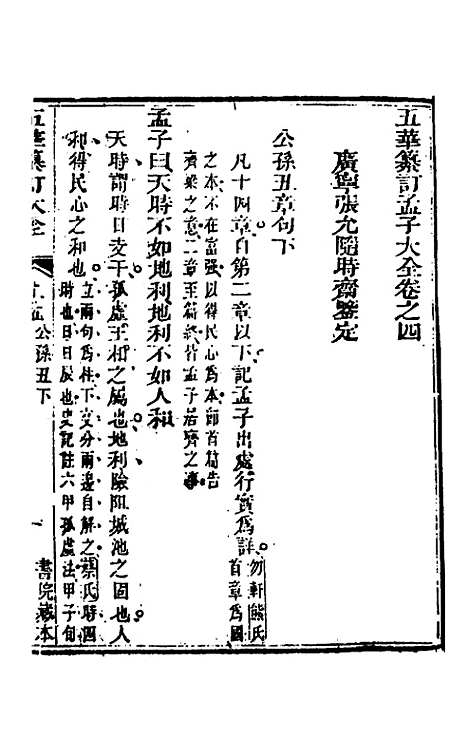 五華纂訂孟子大全卷之四
廣寧張允隨時齋鑒定
公孫丑章句下
凡十四章自第二章以下記孟子出處行實為詳。
勿軒熊氏
首章為國
之本不在富强以得民心為本師首篇告
齊梁之意二章至篇終皆孟子居齊之事
孟子曰天時不如地利地利不如人和
天時謂時日支干孤虛王相之屬也地利險阻城池之固也人
和得民心之和也
立兩句為柱下文分兩邊自解之蔡氏時四
時也日日辰也史記註六甲孤虛法甲子旬
五華纂訂大全
下孟公孫丑下
一
書院藏本